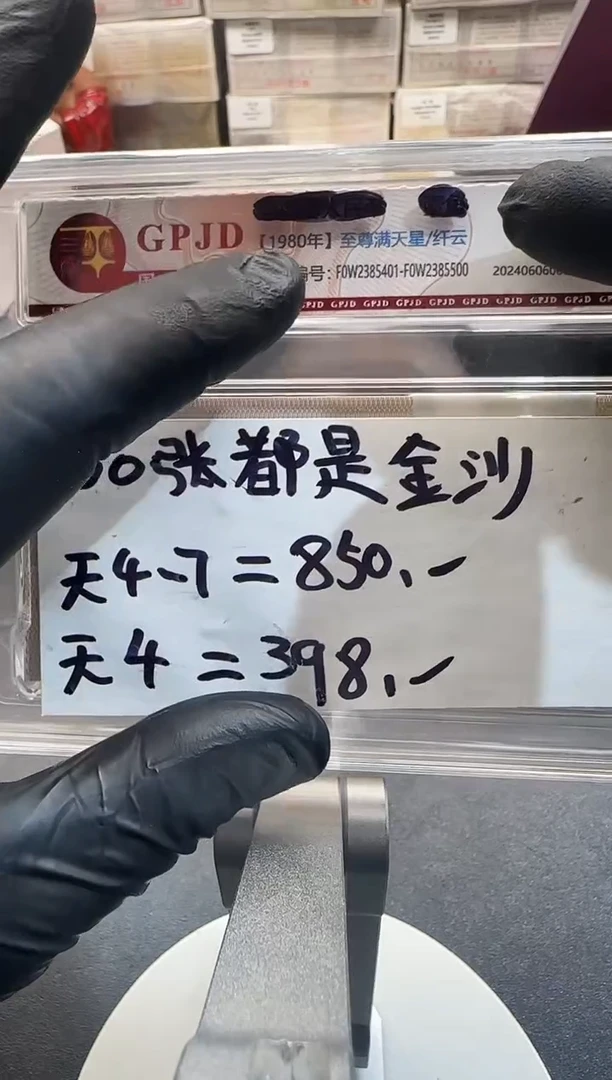 GPJD 【1980年】至尊满天星/纤云
编号：F0W2385401-F0W2385500 202406060
GPJD GPJD GPJD GPJD GPJD GPJD GPJD GPJD
00张都是金沙
天4、7=850,-
天4=398,-